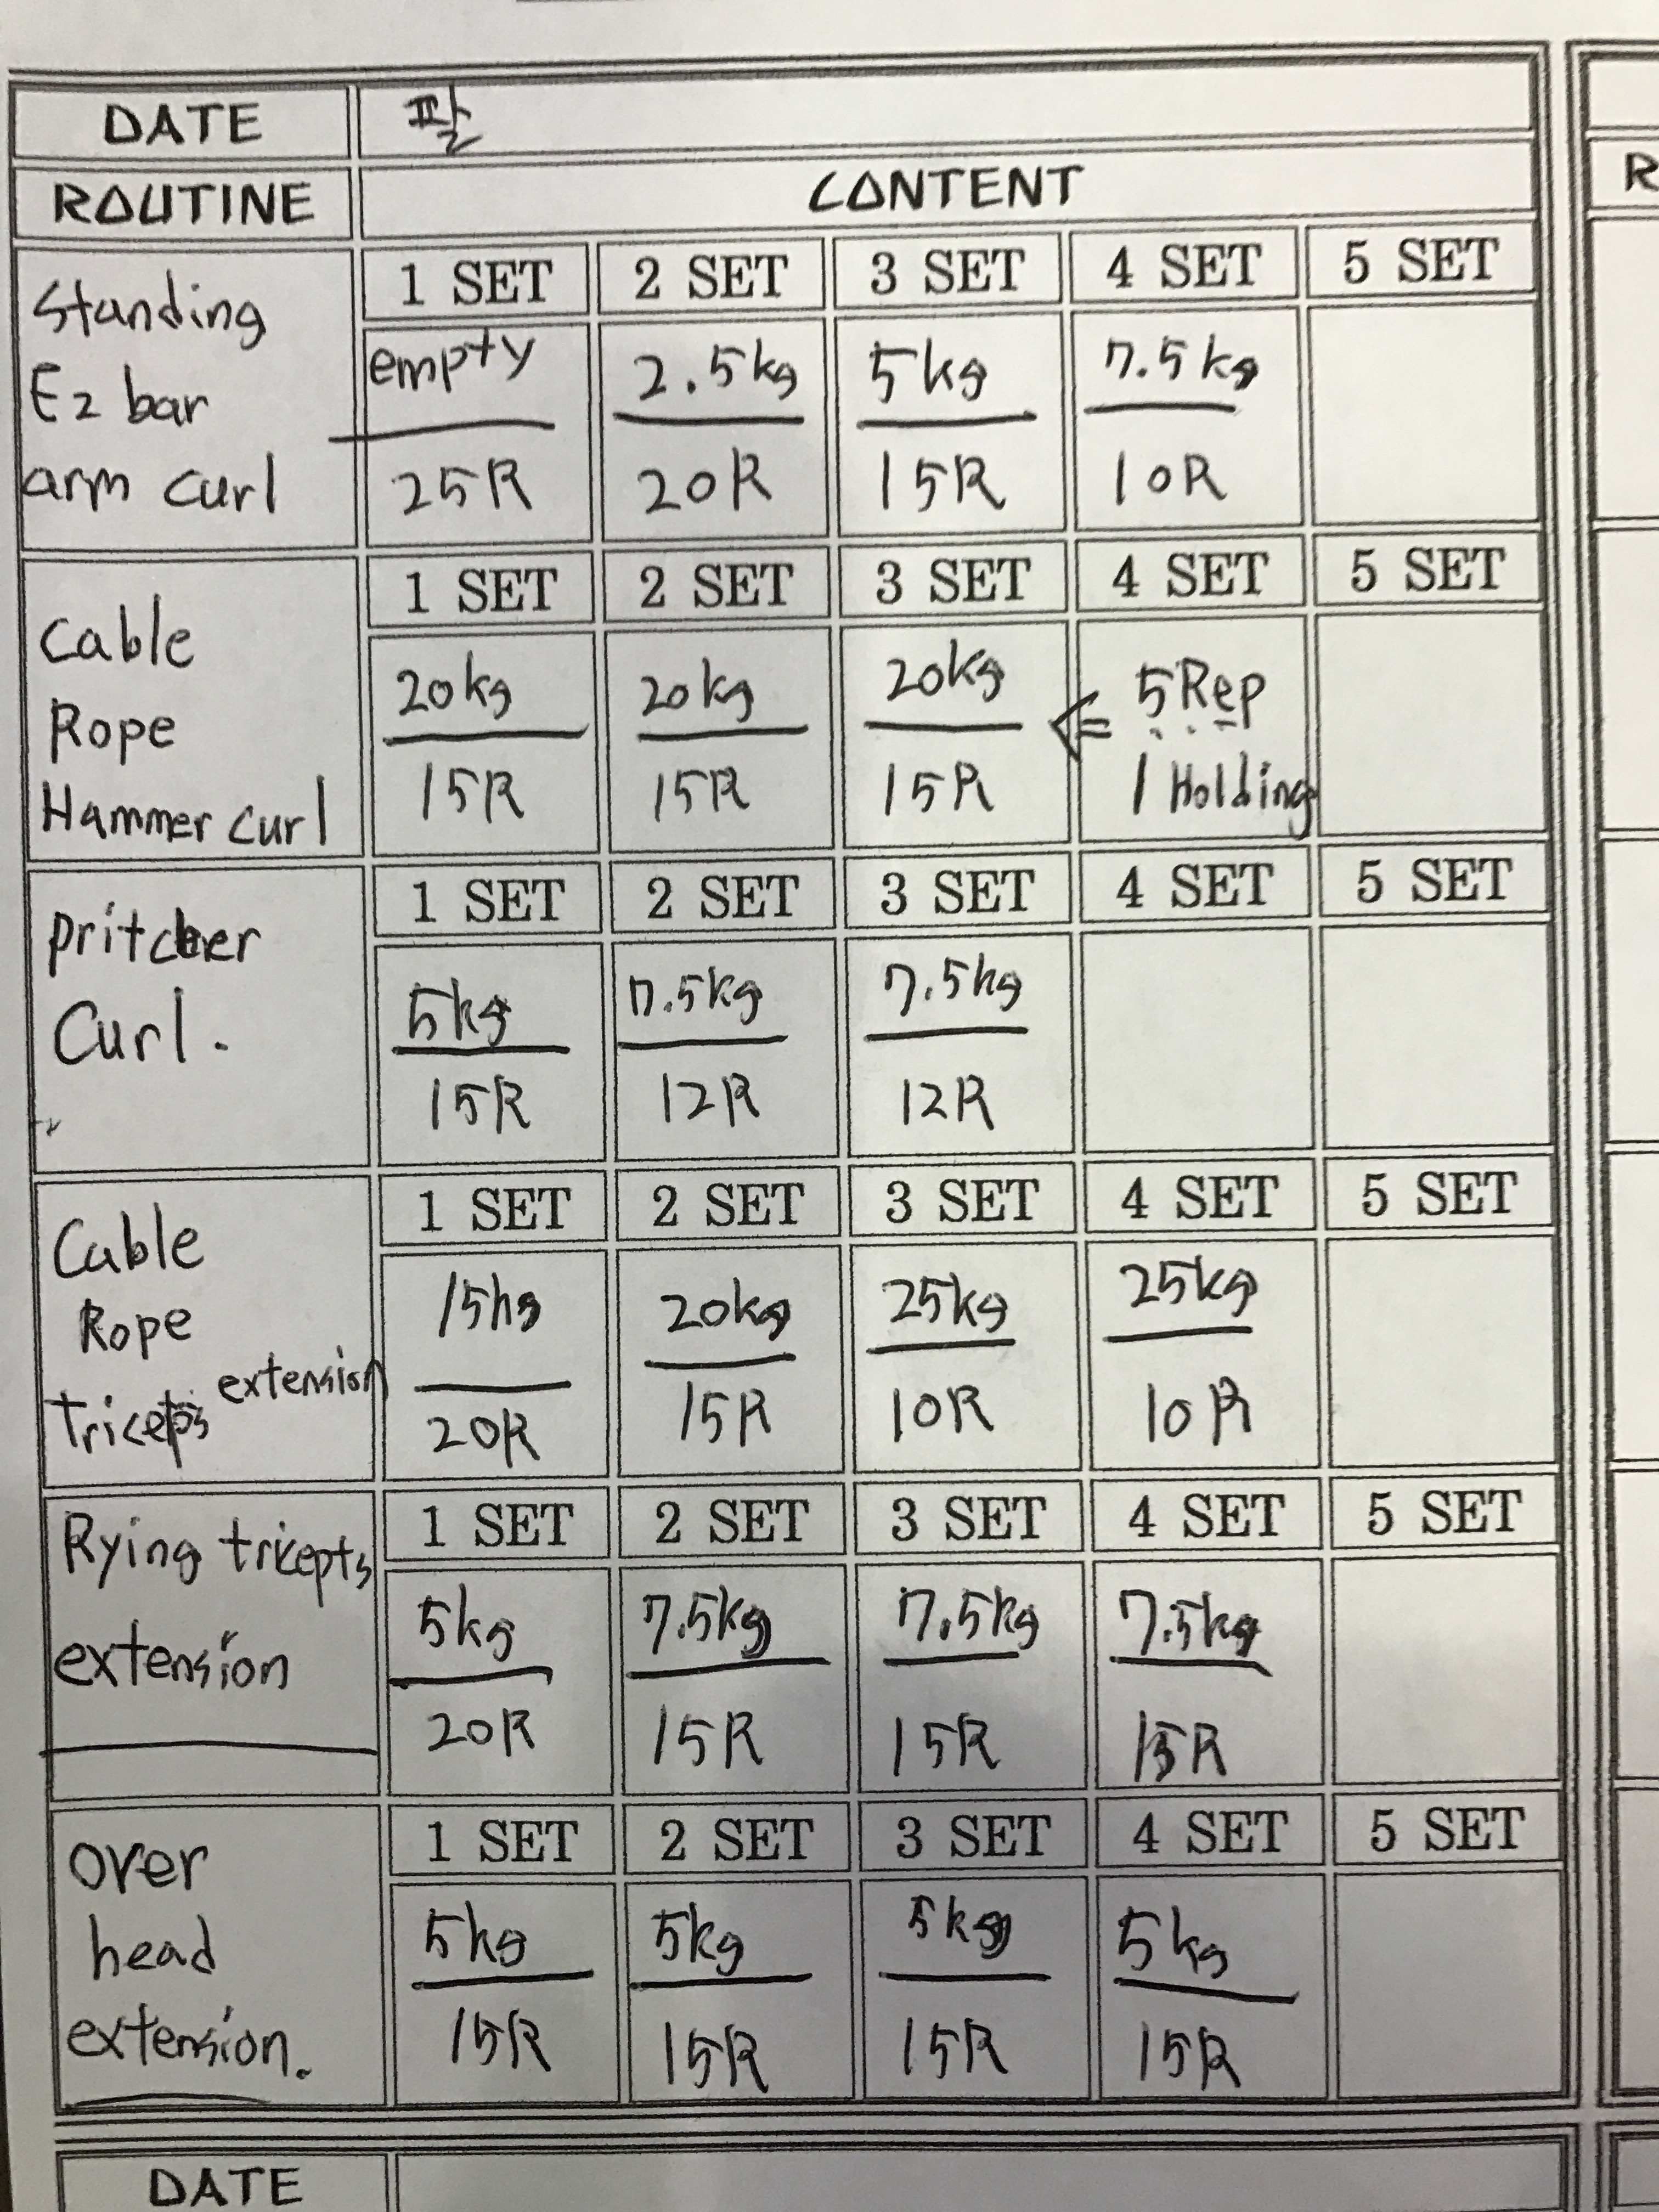 DATE 팔
ROUTINE CONTENT R
Standing Ez bar arm curl
1 SET 2 SET 3 SET 4 SET 5 SET
empty 2.5kg 5kg 7.5kg
25R 20R 15R 10R
Cable Rope Hammer curl
1 SET 2 SET 3 SET 4 SET 5 SET
20kg 20kg 20kg ⇐ 5Rep
15R 15R 15R 1 Holding
pritcher Curl.
1 SET 2 SET 3 SET 4 SET 5 SET
5kg 7.5kg 7.5kg
15R 12R 12R
Cable Rope Tricepts extension
1 SET 2 SET 3 SET 4 SET 5 SET
15kg 20kg 25kg 25kg
20R 15R 10R 10R
Rying tricepts extension
1 SET 2 SET 3 SET 4 SET 5 SET
5kg 7.5kg 7.5kg 7.5kg
20R 15R 15R 15R
over head extension.
1 SET 2 SET 3 SET 4 SET 5 SET
5kg 5kg 5kg 5kg
15R 15R 15R 15R
DATE